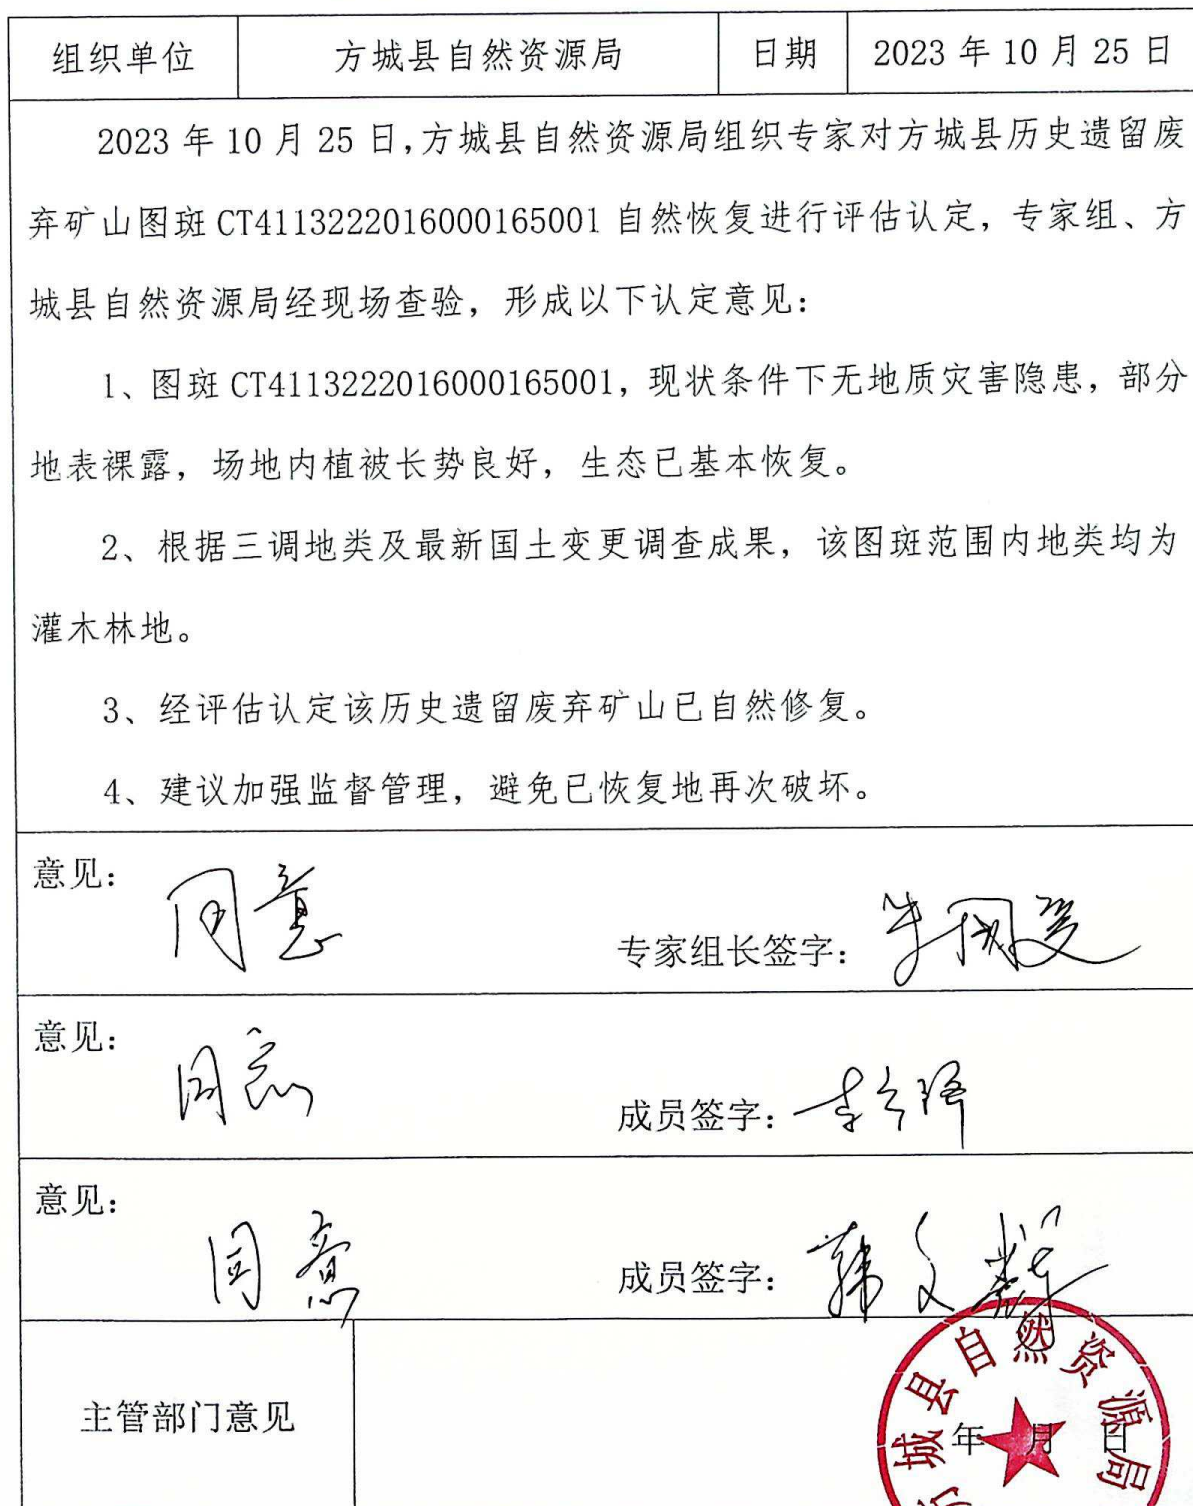 组织单位 方城县自然资源局 日期 2023 年 10 月 25 日
2023 年 10 月 25 日,方城县自然资源局组织专家对方城县历史遗留废
弃矿山图斑 CT4113222016000165001 自然恢复进行评估认定，专家组、方
城县自然资源局经现场查验，形成以下认定意见：
1、图斑 CT4113222016000165001，现状条件下无地质灾害隐患，部分
地表裸露，场地内植被长势良好，生态已基本恢复。
2、根据三调地类及最新国土变更调查成果，该图斑范围内地类均为
灌木林地。
3、经评估认定该历史遗留废弃矿山已自然修复。
4、建议加强监督管理，避免已恢复地再次破坏。
意见：
同意
专家组长签字：
意见：
同意
成员签字：
意见：
同意
成员签字： 韩文辉
主管部门意见
年 月 日
城县自然资源局